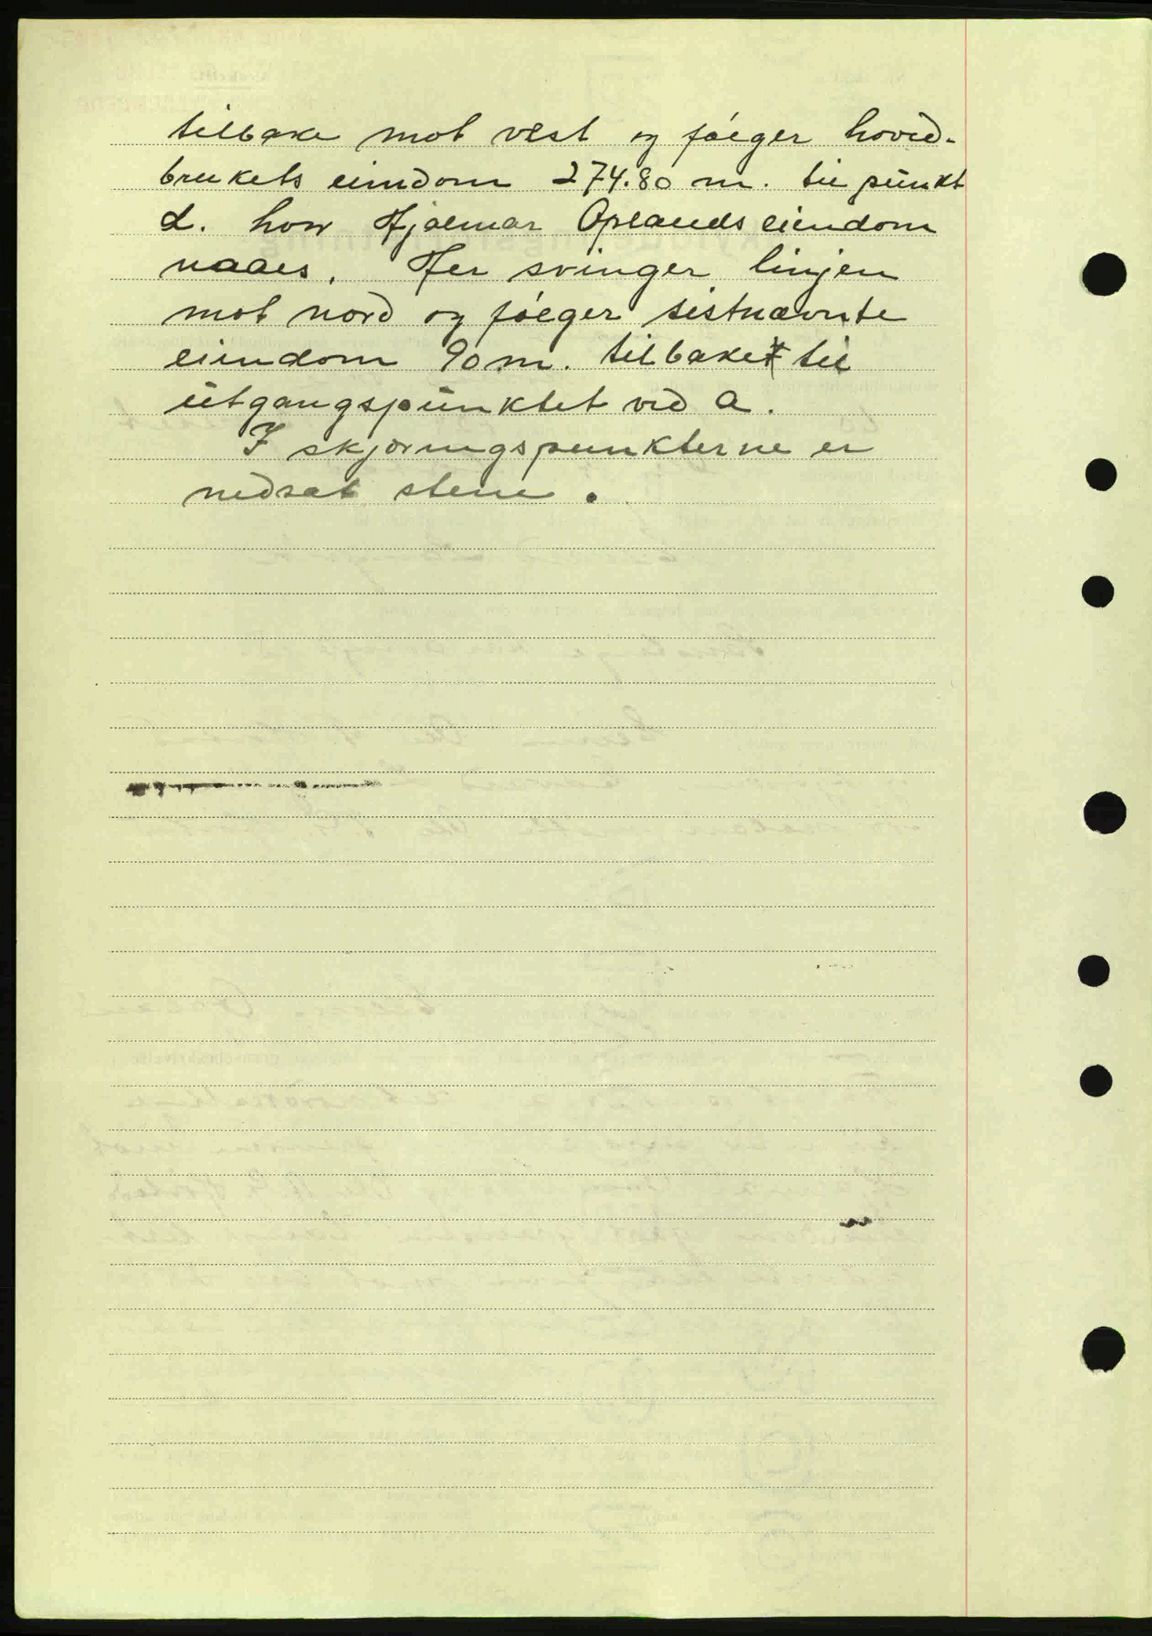 tilbake mot vest og følger hoved-
brukets eiendom 274.80 m. til punkt
d. hvor Hjalmar Oplands eiendom
naaes. Her svinger linjen
mot nord og følger sistnævnte
eiendom 90 m. tilbake til
utgangspunktet ved a.
I skjæringspunkterne er
nedsat stene.